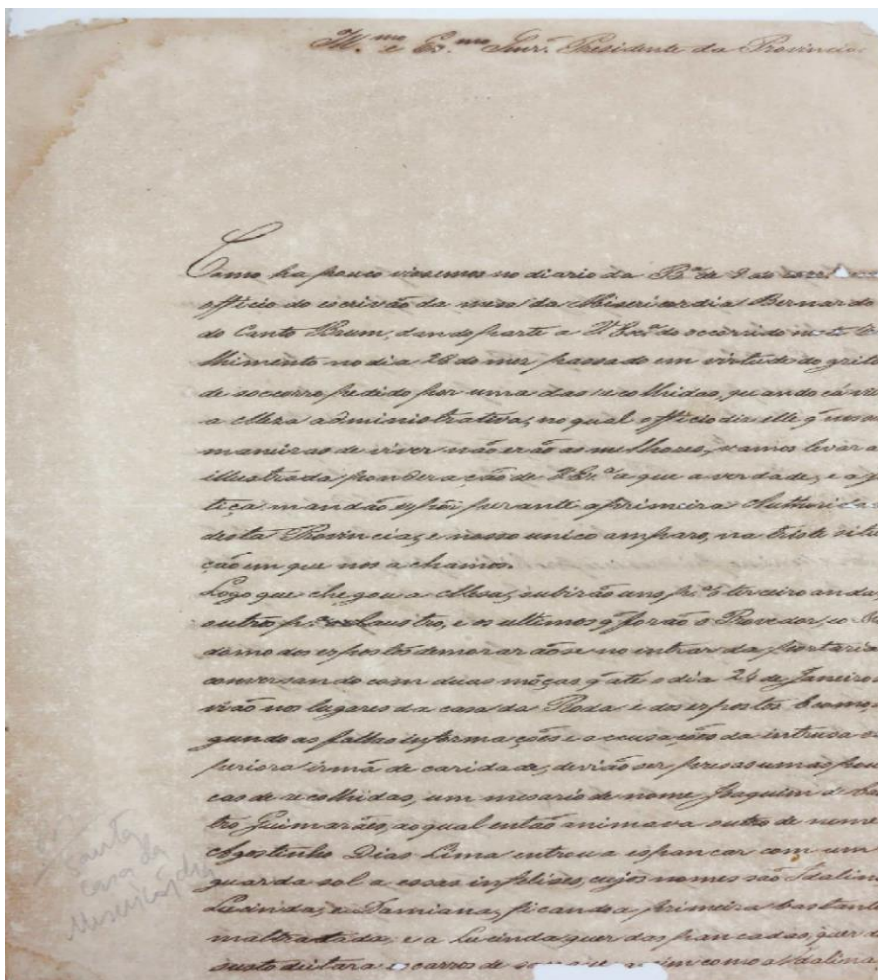 Ill.mo e Ex.mo Snr. Presidente da Provincia
Como ha pouco vissemos no diario da B.a de 9 do
officio do escrivão da mesa da Misericordia Bernardo
do Canto Brum, dando parte a V. Ex.a do occorrido neste
lhimento no dia 28 do mez passado em virtude do grito
de soccorro pedido por uma das recolhidas, quando cá
a Meza administrativa, no qual officio diz elle q̃ nossas
maneiras de viver não erão as milhores, vamos levar a
illustrada ponderação de V. Ex.a o que a verdade, e a
tiça mandão expôr perante a primeira Authorida
desta Provincia, e nosso unico amparo, na triste situ
ção em que nos achamos.
Logo que chegou a Mesa, subirão uns p.a o terceiro anda
outros p.a o Claustro, e os ultimos q̃ forão o Provedor, e o
domo dos expostos demorarãose no entrar da portaria
conversando com duas môças q̃ até o dia 24 de Janeiro
virão nos lugares da casa da Roda e dos expostos
gundo as falhas informações e accusações da intrusa
periora irmã de caridade, devião ser presas umas pou
cas de recolhidas, um mesario de nome Joaquim de Cas
tro Guimarães, ao qual então animava outro de nome
Agostinho Dias Lima entrou a espancar com um
guarda sol a essas infelises, cujos nomes são Idalina
Lucinda, e Damiana, ficando a primeira bastante
maltratada, e a Lucinda quer das pancadas, quer
susto deitara escarros de assim como a Idalina
Santa
casa da
Misericórdia